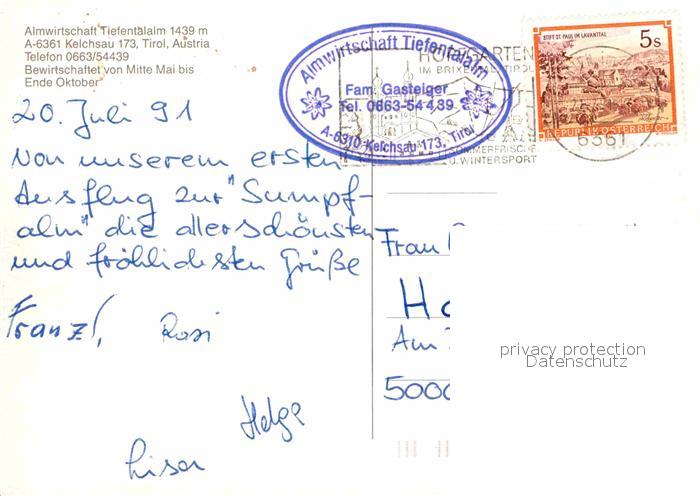 Almwirtschaft Tiefentalalm 1439 m
A-6361 Kelchsau 173, Tirol, Austria
Telefon 0663/54439
Bewirtschaftet von Mitte Mai bis
Ende Oktober
Almwirtschaft Tiefentalalm
Fam. Gasteiger
Tel. 0663-54439
A-6310 Kelchsau 173, Tirol
HOPFGARTEN
IM BRIXENTAL TIROL
SOMMERFRISCHE
U. WINTERSPORT
6361
STIFT ST. PAUL IM LAVANTTAL
5s
REPUBLIK ÖSTERREICH
20. Juli 91
Von unserem ersten
Ausflug zur "Sumpf-
alm" die allerschönsten
und fröhlichsten Grüße
Franzl, Rosi
Helga
Lisa
Frau
Am
5000
privacy protection
Datenschutz